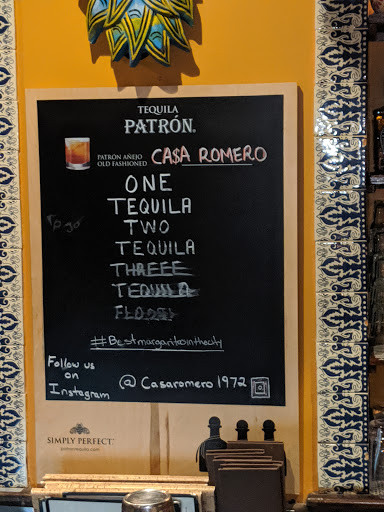 TEQUILA
PATRÓN.
PATRÓN AÑEJO
OLD FASHIONED
CA$A ROMERO
ONE
TEQUILA
TWO
TEQUILA
THREEE
TEQUILA
FLOOR
#Bestmargaritainthecity
Follow us
on
Instagram
@Casaromero1972
SIMPLY PERFECT.